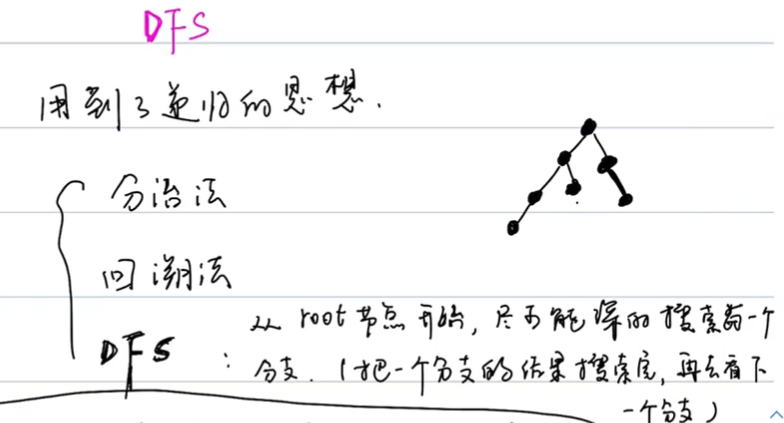 DFS
用到了递归的思想.
分治法
回溯法
DFS : 从 root 节点开始, 尽可能深的搜索每一个
分支. (把一个分支的结果搜索完, 再去看下
一个分支)